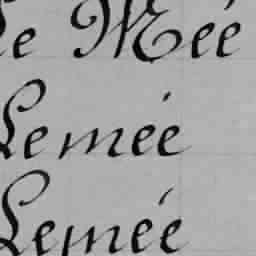 Le Mée
Lemée
Lemée